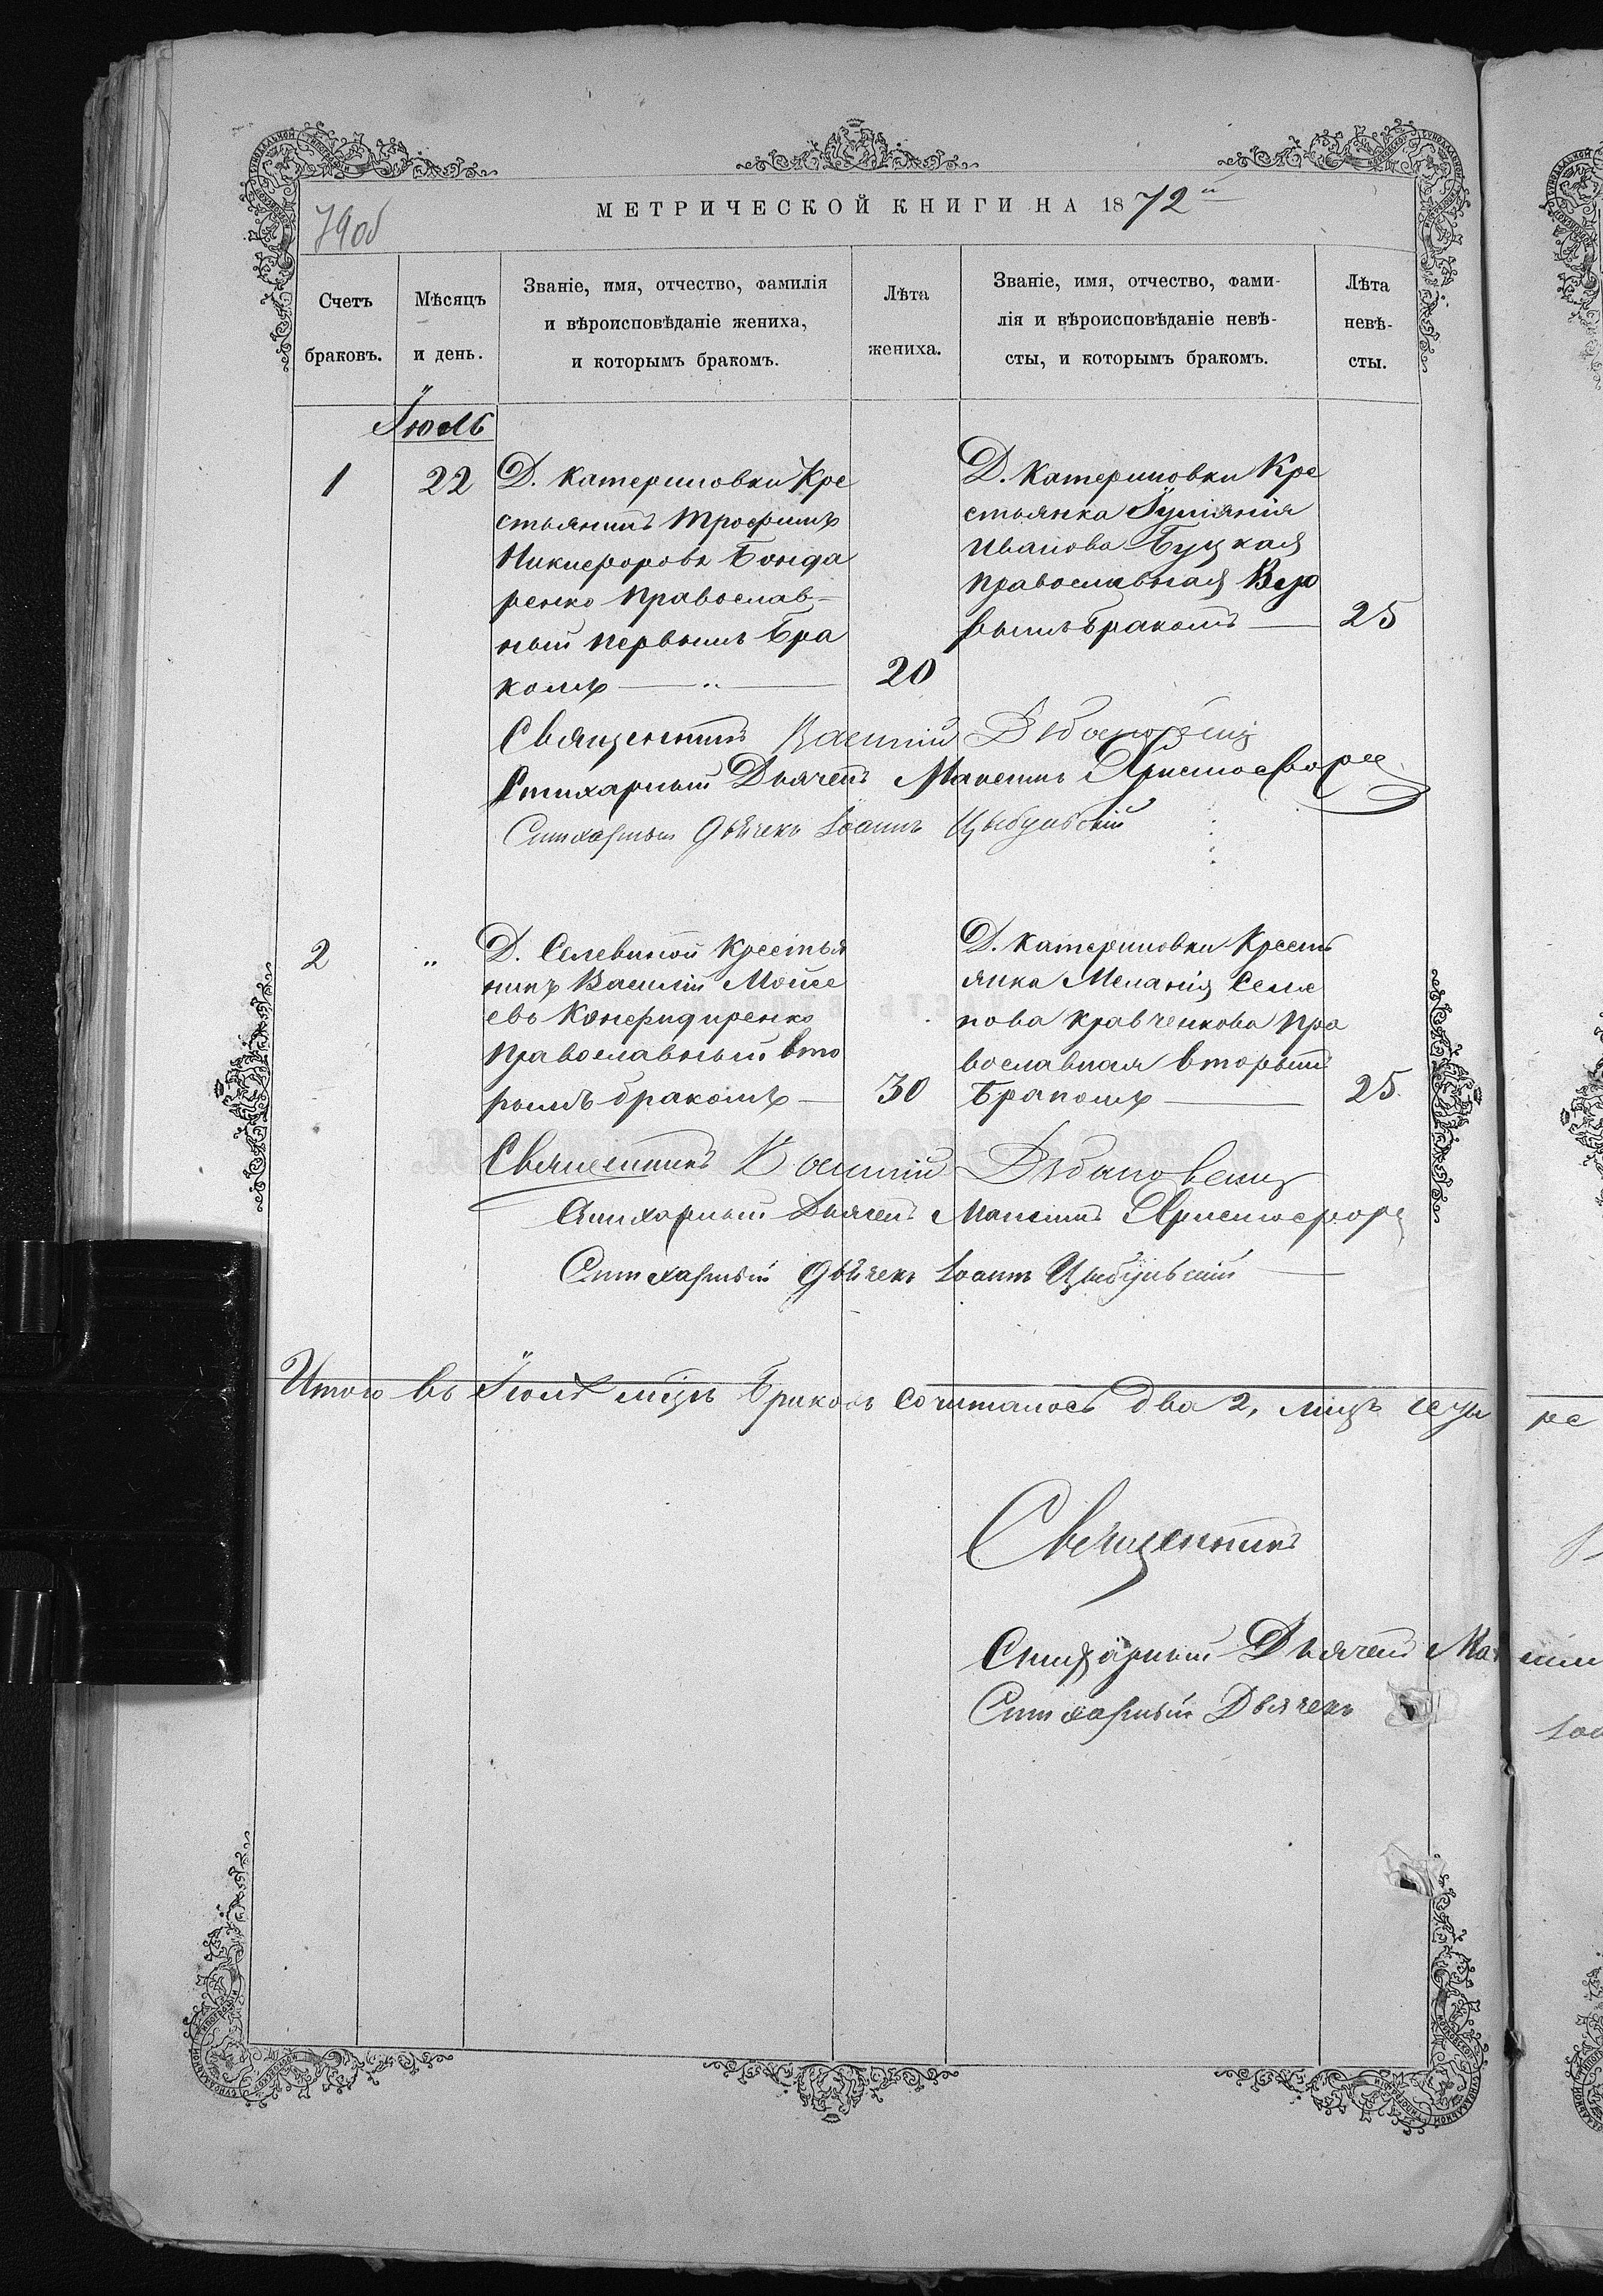 79об
МЕТРИЧЕСКОЙ КНИГИ НА 1872й
Счетъ браковъ.
Мѣсяцъ и день.
Званіе, имя, отчество, фамилія
и вѣроисповѣданіе жениха,
и которымъ бракомъ.
Лѣта
жениха.
Званіе, имя, отчество, фами-
лія и вѣроисповѣданіе невѣ-
сты, и которымъ бракомъ.
Лѣта
невѣ-
сты.
Іюль
1
22
Д. Катериновки Кре
стьянинъ Трофимъ
Никифоровъ Бонда
ренко Православ-
ный первымъ Бра
комъ
20
Д. Катериновки Кре
стьянка Іуліянія
Иванова Буцкая
Православная
вымъ бракомъ
25
Священникъ Василій
Стихарный Дьячекъ Максимъ
Стихарный Дьячекъ Іоаннъ Цыбульскій
2
"
Д. Селевиной Крестья
нинъ Василій Мойсе
евъ
Православный вто
рымъ бракомъ
30
Д. Катериновки Кресть
янка Меланія Семе
нова Кравченкова Пра
вославная вторымъ
Бракомъ
25
Священникъ Василій
Стихарный Дьячекъ Максимъ
Стихарный Дьячекъ Іоаннъ Цыбульскій
Итого въ Іюлѣ мѣцѣ Браковъ сочиталось два 2,
Священникъ
Стихарный Дьячекъ
Стихарный Дьячекъ